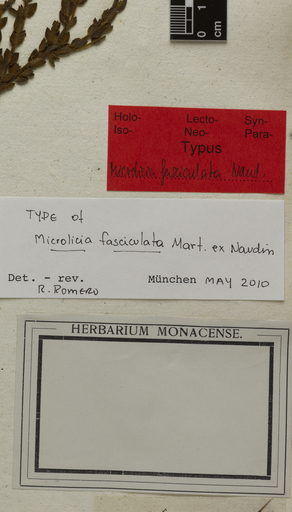 0 1
cm
Holo- Lecto- Syn-
Iso- Neo- Para-
Typus
Microlicia fasciculata Naud.
TYPE of
Microlicia fasciculata Mart. ex Naudin
Det. - rev. München MAY 2010
R. ROMERO
HERBARIUM MONACENSE.